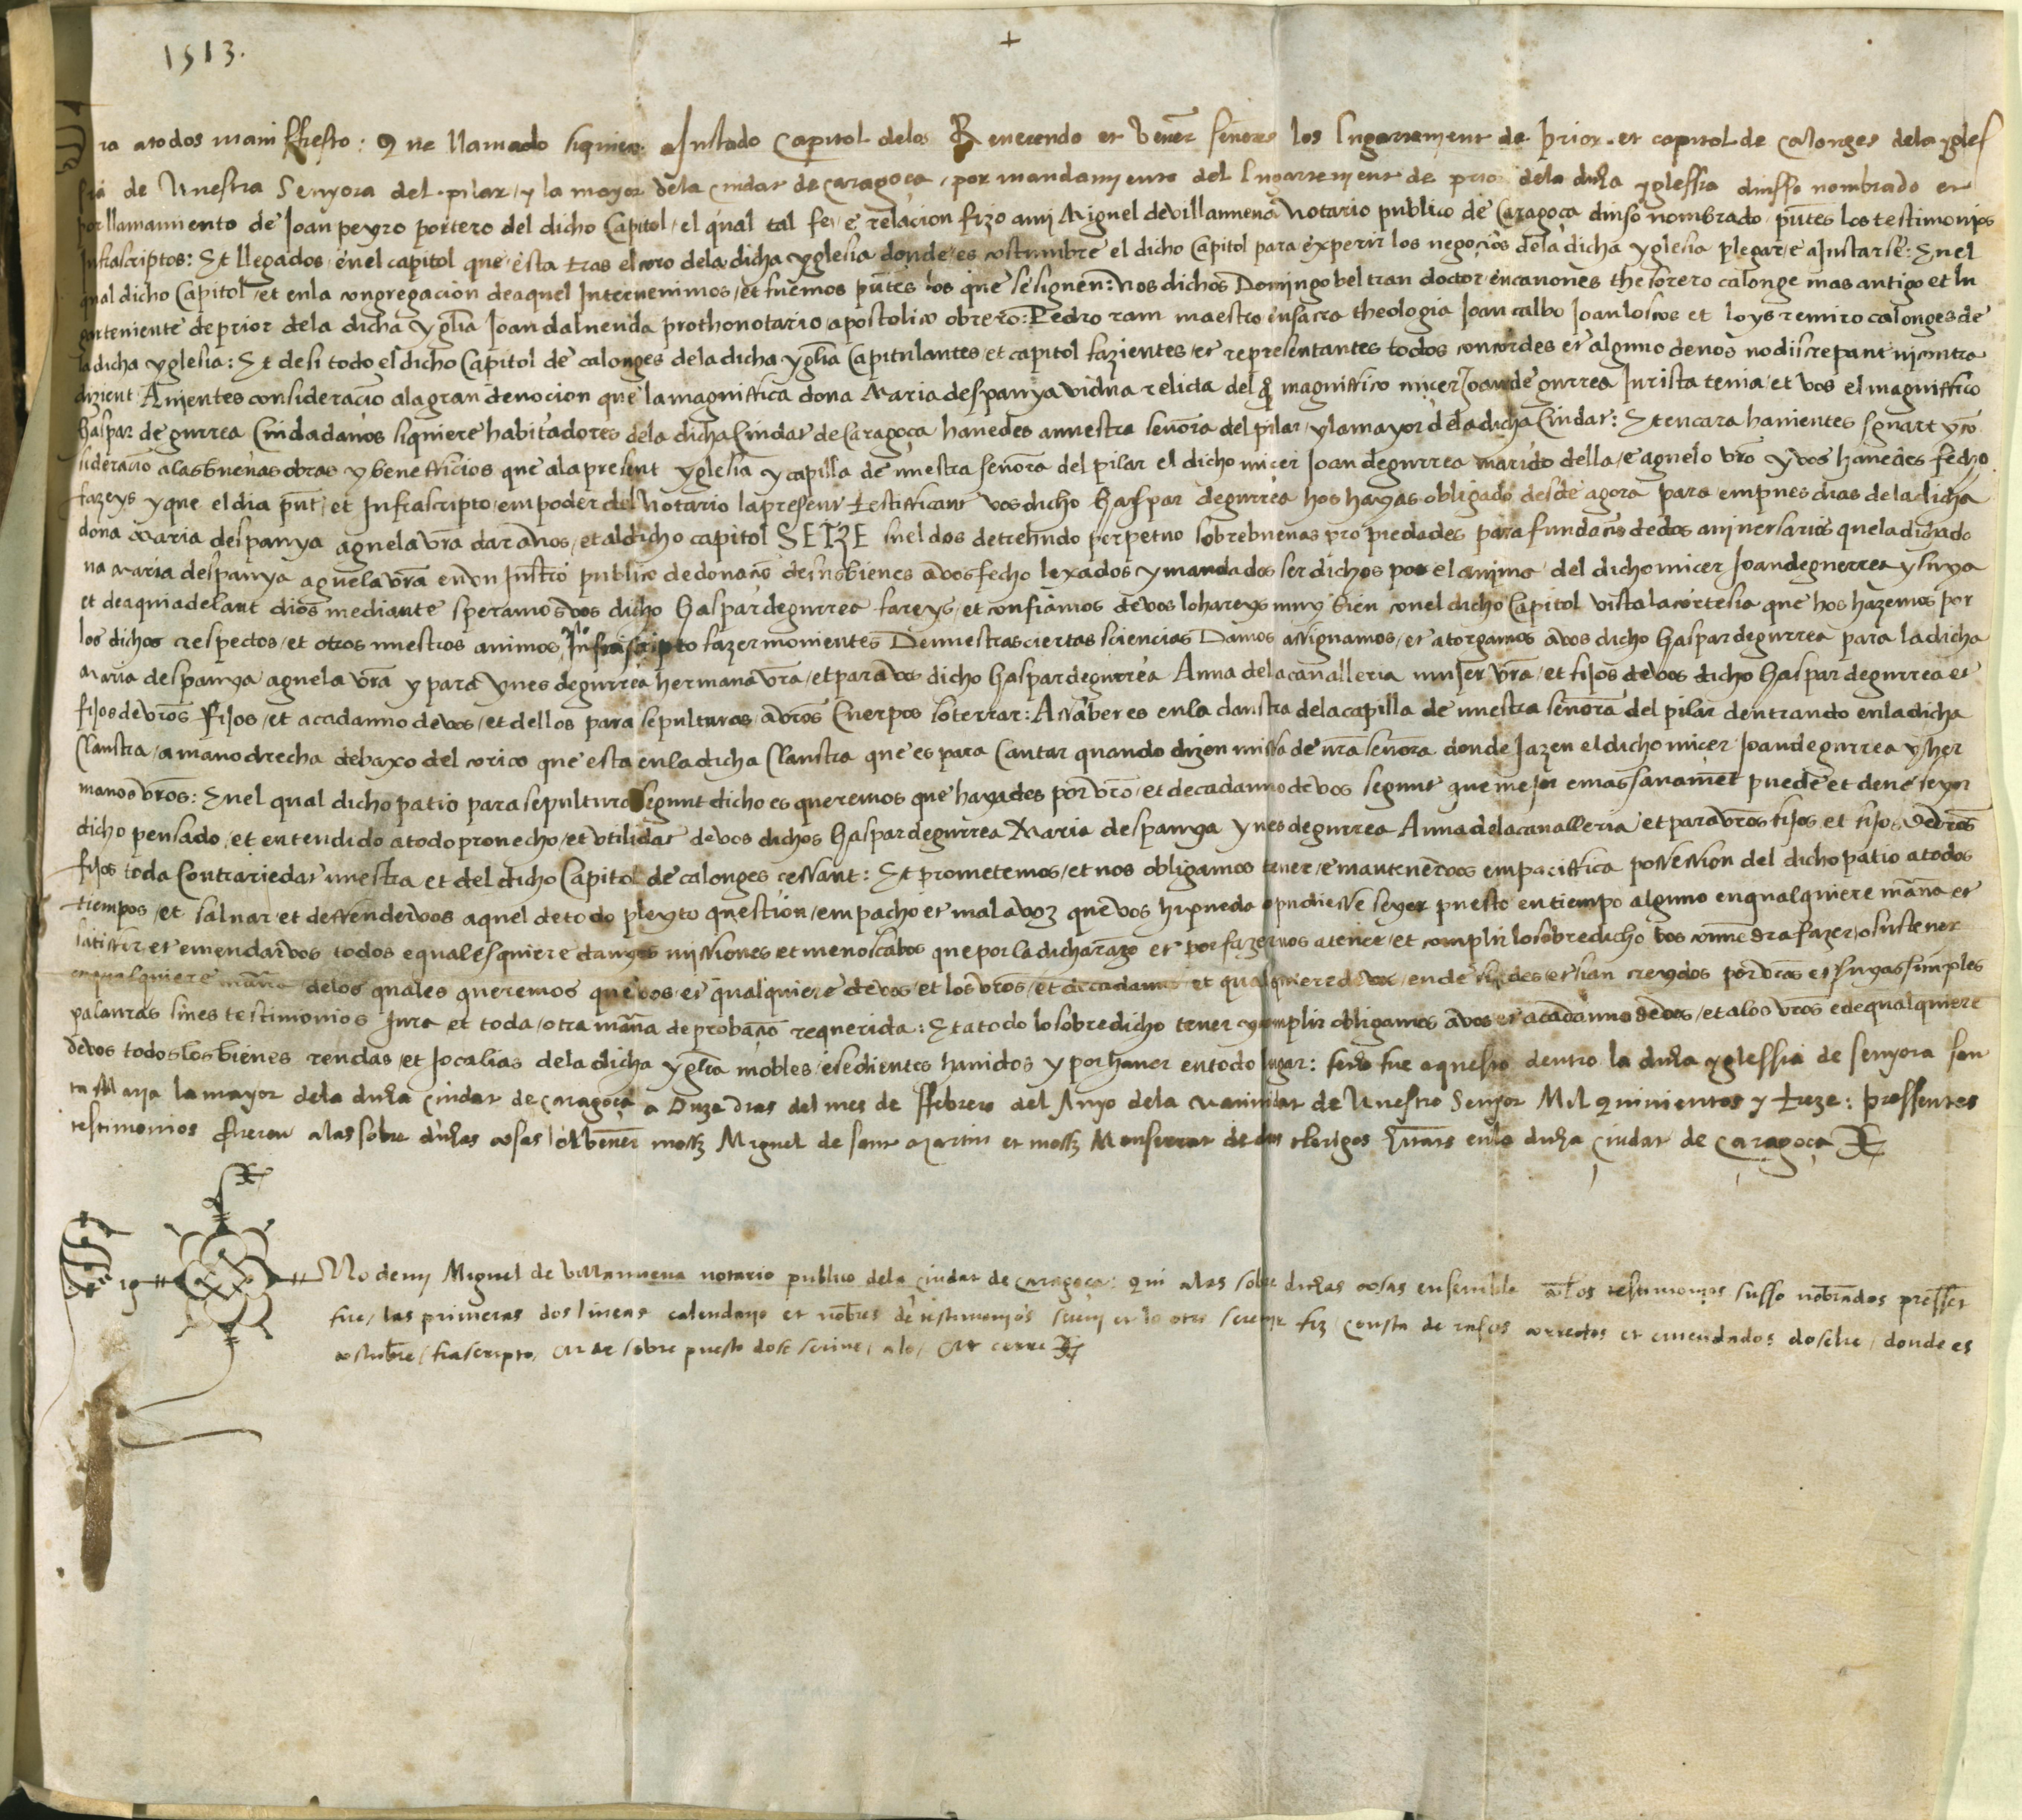 1513.
ra atodos maniffiesto: Que llamado siquiere aJustado Capitol delos Reverendo et Vener senores los lugarteniente de prior et capitol de calonges dela ygles
sia de Nuestra Senyora del pilar / y la mayor dela ciudat de caragoça / por mandamiento del lugarteniente de prior dela dicha yglessia diusso nombrado et
por llamamiento de Joan peyro portero del dicho Capitol / el qual tal fe / e relacion fizo ami Miguel devillanueva Notario publico de Caragoça diuso nombrado / pntes los testimonios
Infrascriptos: Et llegados enel capitol que esta tras el coro dela dicha yglesia donde es costumbre el dicho Capitol para experir los negocios dela dicha yglesia plegar / e aJustarse: Enel
qual dicho Capitol / et enla congregacion deaquel Intervenimos / et fuemos pntes los que sesiguen: Nos dichos Domingo beltran doctor encanones thesorero calonge mas antigo et lu
garteniente deprior dela dicha yglia Joan dalmenda prothonotario apostolico obrero: Pedro ram maestro ensacra theologia Joan calbo Joan loscos et loys remiro calonges de
la dicha yglesia: Et de si todo el dicho Capitol de calonges dela dicha yglia Capitulantes / et capitol fazientes / et representantes todos concordes et alguno denos no discrepant ni contra
dizient Avientes consideracio ala gran devocion que la magniffica dona Maria despanya vidua relicta del q magniffico micer Joan de gurrea Jurista tenia / et vos el magniffico
Gaspar de gurrea Ciudadanos siquiere habitadores dela dicha Ciudat de Caragoça havedes anuestra senora del pilar / y la mayor dela dicha Ciudat: Et encara havientes sguart y co
sideracio alas buenas obras y benefficios que ala present yglesia y capilla de nuestra senora del pilar el dicho micer Joan degurrea marido della / e aguelo vro y vos havedes fecho
fazeys y que el dia pnt / et Infrascripto / empoder del Notario la present testifficant vos dicho Gaspar degurrea hos hayas obligado desde agora para empues dias dela dicha
dona Maria despanya aguela vra dar anos / et al dicho capitol SETZE sueldos detrehudo perpetuo sobre buenas propiedades para fundacio dedos aniversarios que la dicha do
na Maria despanya aguela vra en un Justro publico de donacio de sus bienes avos fecho lexados y mandados ser dichos por el anima del dicho micer Joan deguerrea y suya
et deaquiadelant dios mediante speramos vos dicho Gaspar degurrea fareys / et confiamos devos lo hareys muy bien con el dicho Capitol vista la cortesia que hos hazemos por
los dichos respectos / et otros nuestros animos Infrascripto fazer movientes De nuestras ciertas sciencias Damos assignamos / et atorgamos avos dicho Gaspar degurrea para la dicha
Maria despanya aguela vra y para Ynes degurrea hermana vra / et para vos dicho Gaspar degurrea Anna dela cavalleria muJer vra / et fiJos de vos dicho Gaspar degurrea et
fiJos de vros fiJos / et acadauno devos / et dellos para sepulturas avros Cuerpos soterrar: Assaber es enla claustra dela capilla de nuestra senora del pilar dentrando enla dicha
Claustra / a mano drecha debaxo del corico que esta enla dicha Claustra que es para Cantar quando dizen missa de nra senora donde Jazen el dicho micer Joan degurrea y sher
manos vros: Enel qual dicho patio para sepultura segunt dicho es queremos que hayades por vro / et decadauno de vos segunt que meJor e mas sanamet puede et deve seyer
dicho pensado / et entendido a todo provecho / et utilidat de vos dichos Gaspar degurrea Maria despanya ynes degurrea Anna dela cavalleria et para vros fiJos et fiJos de vros
fiJos toda Contrariedat nuestra et del dicho Capitol de calonges cessant: Et prometemos / et nos obligamos tener / e mantenervos empaciffica possession del dicho patio atodos
tiempos / et salvar / et deffendervos aquel detodo pleyto question / empacho et mala voz que vos hi pueda o pudiesse seyer puesto en tiempo alguno enqualquiere mana et
satisfer et emendarvos todos e qualesquiere danyos missiones et menoscabos que por la dicha razo et por fazervos atener / et complir lo sobredicho vos convendra fazer / o sustener
enqualquiere mana delos quales queremos que vos / et qualquiere de vos / et los vros / et decadauno et qualquiere devos / ende siades et sian creydos por vras et suyas simples
palauras sines testimonios Jura et toda / otra mana de probacio requerida: Et atodo lo sobredicho tener y complir obligamos avos et acadauno devos / et alos vros e dequalquiere
devos todos los bienes rendas / et Jocalias dela dicha yglia mobles / e sedientes havidos y por haver en todo lugar: fecho fue aquesto dentro la dicha yglessia de senyora san
ta Maria la mayor dela dicha ciudat de caragoça a Duze dias del mes de Ffebrero del Anyo dela nativitat de Nuestro Senyor Mil quinientos y treze: pressentes
testimonios fueron alas sobre dichas cosas los vener mossz Miguel de sent Martin et mossz Monserrat de clerigos hitans enla dicha ciudat de caragoça
Sig no demi Miguel de Villanueva notario publico dela ciudat de caragoça: Qui alas sobre dichas cosas ensemble con los testimonios susso nobrados presset
fue / las primeras dos lineas calendario et nobres de testimonios scrivi et lo otro scrivir fiz / consta de rasos correctos et emendados do se lie / donde es
costubre / frascripto / et de sobre puesto do se scrive / alo / et cerre